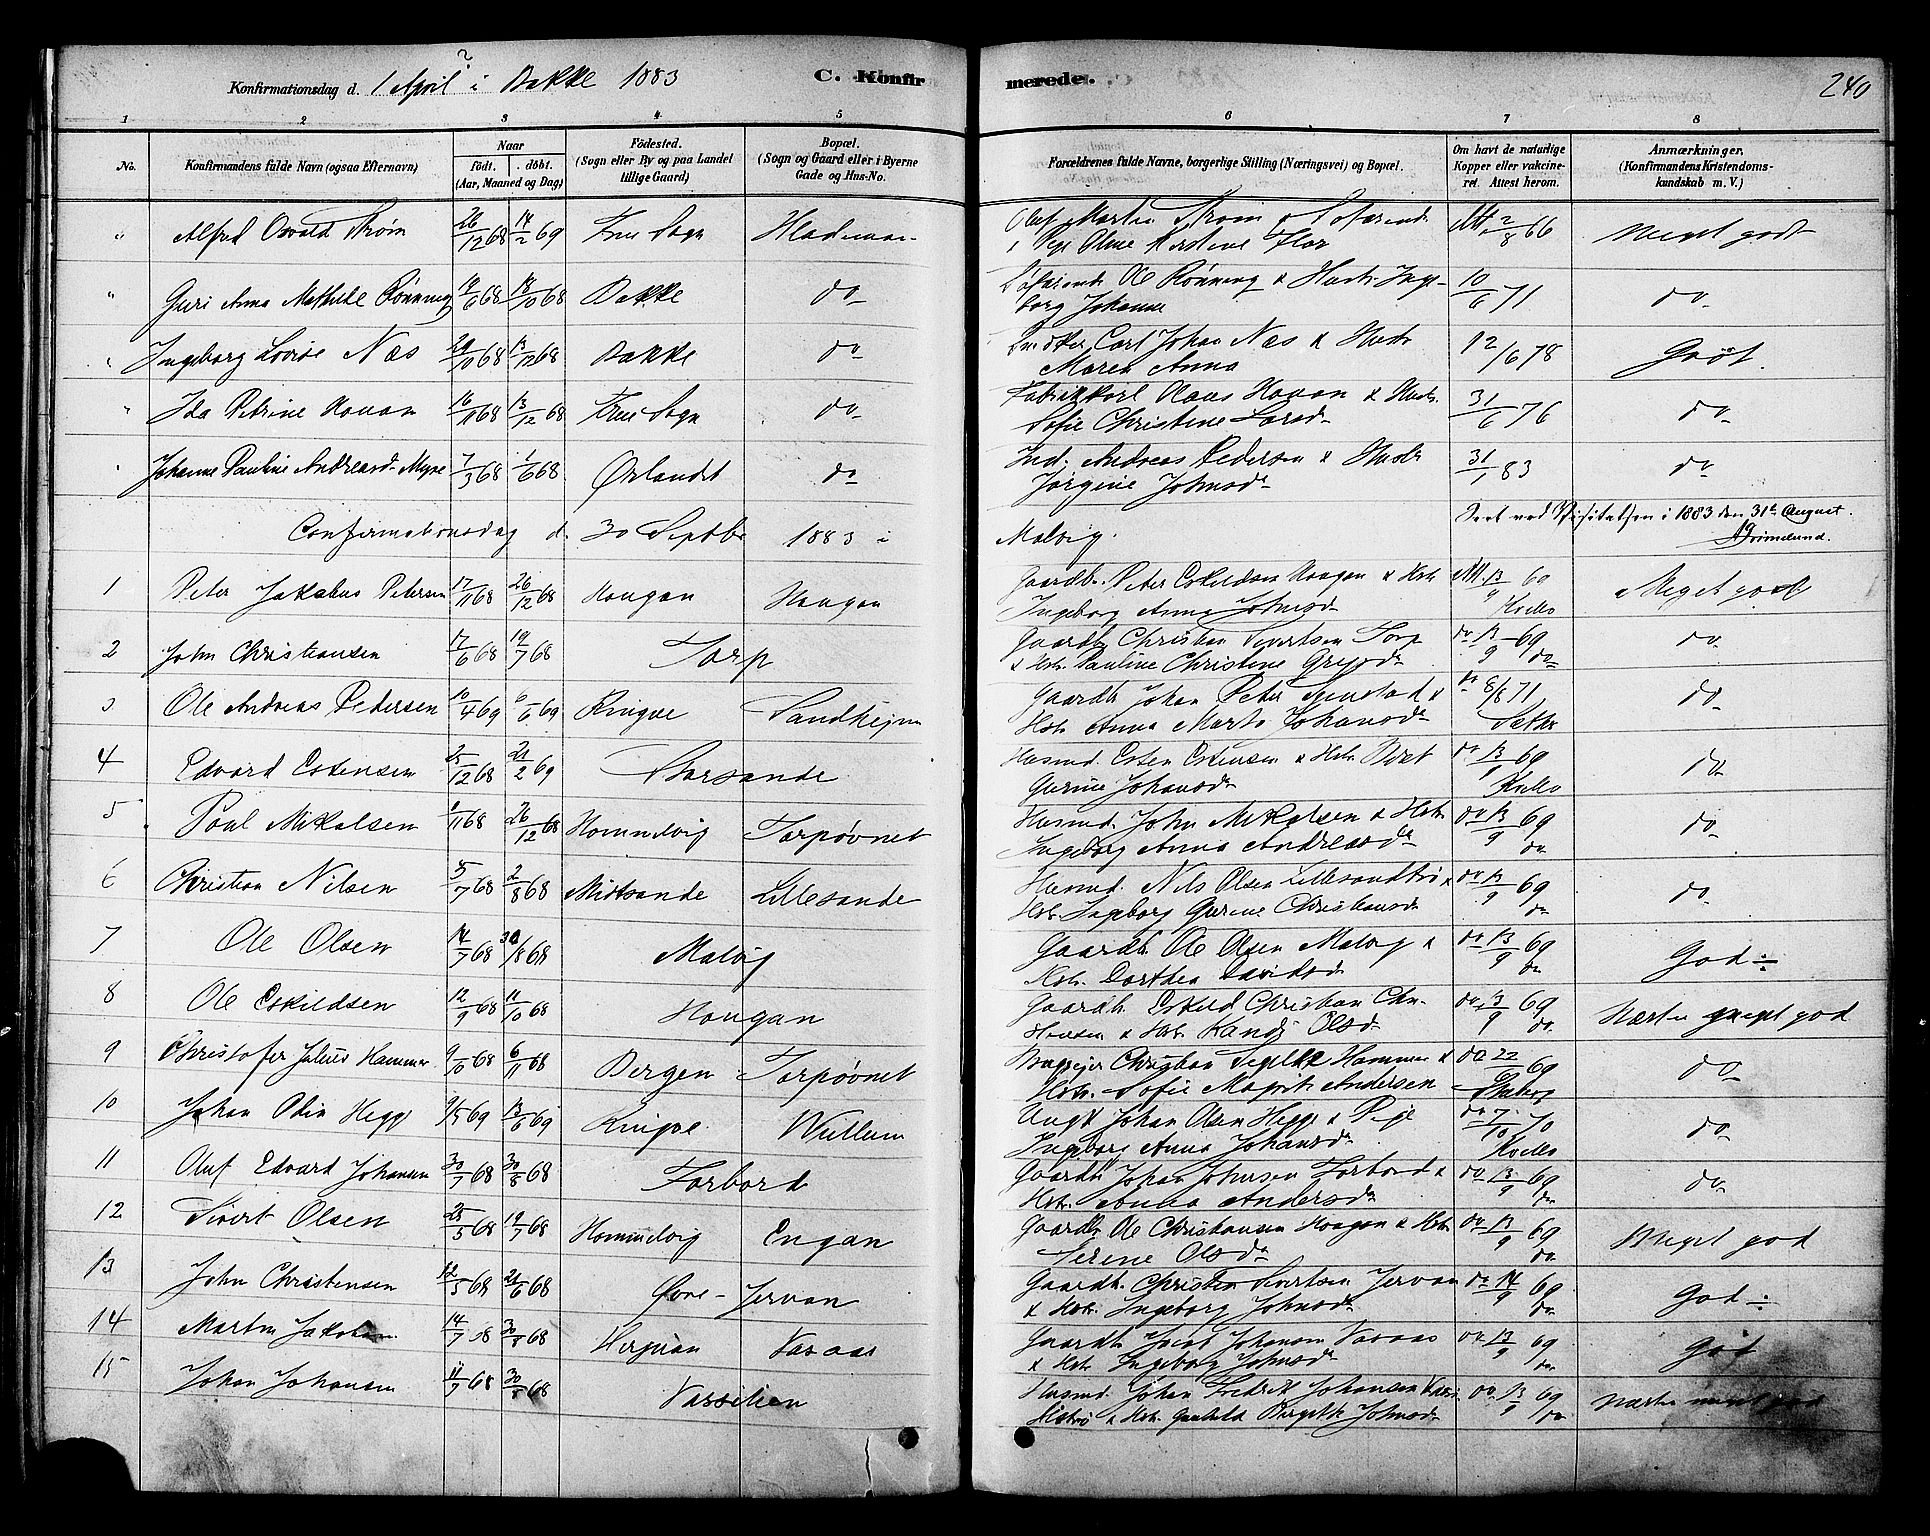 Konfirmationsdag d. 1 April i Bakke 1883
C. Konfirmerede.
240
1 2 3 4 5 6 7 8
No.
Konfirmandens fulde Navn (ogsaa Efternavn)
Naar
Födt. döbt.
(Aar, Maaned og Dag)
Födested.
(Sogn eller By og paa Landet
tillige Gaard)
Bopæl.
(Sogn og Gaard eller i Byerne
Gade og Hus-No.
Forældrenes fulde Navne, borgerlige Stilling (Næringsvei) og Bopæl.
Om havt de naturlige
Kopper eller vakcine-
ret. Attest herom.
Anmærkninger,
(Konfirmandens Kristendoms-
kundskab m. V.)
" Alfred Osvald Strøm 26/12 68 14/2 69 Frue Sogn Olaf Martin Strøm Meget godt
" Guri Anna Mathilde Rönning Bakke do Ole Rönning & Hustr. Inge-
borg Johanne 10/6 71 do
" Ingeborg Lovise Næs Bakke do Carl Johan Næs & Hustr.
Maren Anna 12/6 78 Godt.
" Ida Petrine Hovan 13/12 68 Frue Sogn do Hans Hovan & Hustr.
Sofie Christine Larsd. 31/6 76 do
" Johanne Pauline Andreasd. Myse 7/3 68 1/6 68 Ørlandet do Ind. Andreas Pedersen & Hustr.
Jörgine Johnsd. 31/1 83 do
Confirmationsdag d. 30 Septbr 1883 i Malvig.
Seet ved Visitatsen i 1883 den 31te August.
Grimelund.
1 Peter Jakobus Petersen 17/11 68 26/12 68 Hougan Hougan Gaardb. Peter Eskildsen Hougan & Hstr.
Ingeborg Anna Johnsd. Meget god
2 John Christiansen 17/6 68 19/7 68 Torp Gaardb. Christian Sivertsen Torp
& Hstr. Pauline Christine do 13/9 69 do do
3 Ole Andreas Pedersen 10/4 69 6/6 69 Ringve Gaardb. Johan Peter
Hstr. Anna Marta Johansd. 8/8 71 do
4 Edvard Estensen 25/12 68 21/2 69 Storsande Husmd. Esten Estensen & Hstr. Beret
Gurine Johansd. do 13/9 69 do
5 Paul Mikalsen 26/12 68 Hommelvig Torpövnet Husmd. John Mikalsen & Hstr.
Ingeborg Anna Andreasd. do 13/9 69 do do
6 Christian Nilsen 5/7 68 2/8 68 Midtsande Lillesande Husmd. Nils Olsen Lillesandtrö &
Hstr. Ingeborg Gurine Christiansd. do 13/9 69 do do
7 Ole Olsen 14/7 68 30/8 68 Malvig Gaardb. Ole Olsen Malvig &
Hstr. Dorthea Davidsd. do 13/9 69 do God ÷
8 Ole Eskildsen 12/9 68 11/10 68 Hougan Gaardb. Eskild Christian Chri-
stensen & Hstr. Randi Olsd. do 13/9 69 do Næsten meget god
9 Christofer Julius Hammer 9/10 68 6/11 68 Bergen Torpövnet Christian Hammer &
Hstr. Sofie Magrit Andersen do 22 69 do
10 Johan Odin Hegg 9/5 69 13/6 69 Ringve Wullum Ungk. Johan Olsen Hegg & Pige
Ingeborg Anna Johansd. do 7/10 70 do
11 Oluf Edvard Johansen 30/7 68 30/8 68 Forbord Gaardb. Johan Johnsen Forbord &
Hstr. Anna Andersd. do 13/9 69 do do
12 Sivert Olsen 25/5 68 19/7 68 Hommelvig Engan Gaardb. Ole Christiansen Hougan & Hstr.
Serene Olsd. do 13/9 69 do Meget god
13 John Christensen 12/5 68 21/6 68 Övre-Jervan Gaardb. Christen Sivertsen Jervan
& Hstr. Ingeborg Johnsd. do 14/9 69 do God ÷
14 Martin Jakobsen 14/7 68 30/8 68 Vasaas Gaardb. Jacob Johansen Vasaas
& Hstr. Ingeborg Johnsd. do 13/9 69 do God
15 Johan Johansen 11/7 68 30/8 68 Husmd. Johan Fredrik Johansen
& Hstr. Birgitte Johnsd. do 13/9 69 do Næsten meget god